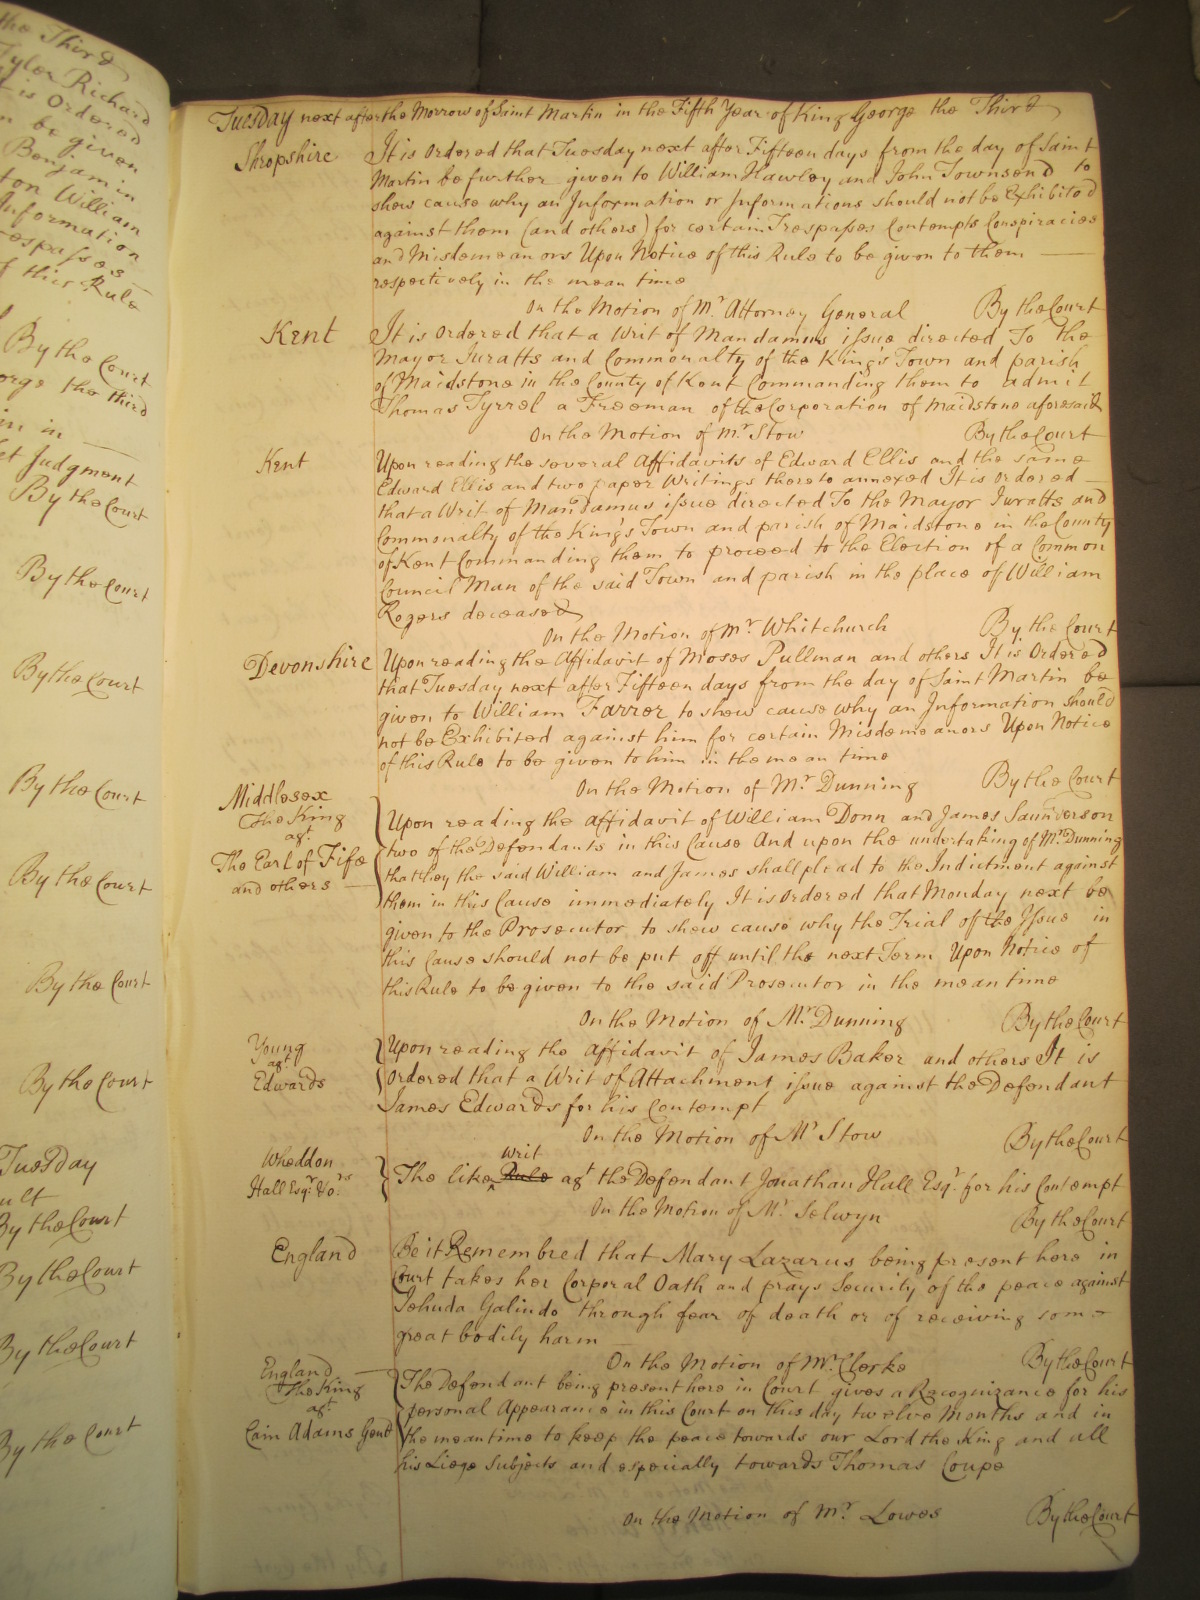 the Third
Tyler Richard
it is Ordered
be given
Benjamin
ton William
Information
respasses
of this Rule
By the Court
orge the third
in in
et Judgment
By the Court
By the Court
By the Court
By the Court
By the Court
By the Court
By the Court
Tuesday
ult
By the Court
By the Court
By the Court
By the Court
Tuesday next after the Morrow of Saint Martin in the Fifth Year of King George the Third
Shropshire It is Ordered that Tuesday next after Fifteen days from the day of Saint
Martin be further given to William Hawley and John Townsend to
shew cause why an Information or Informations should not be Exhibited
against them (and others) for certain Trespasses Contempts Conspiracies
and Misdemeanors Upon Notice of this Rule to be given to them
respectively in the mean time
On the Motion of Mr. Attorney General By the Court
Kent It is Ordered that a Writ of Mandamus issue directed To the
Mayor Juratts and Commonalty of the King's Town and parish
of Maidstone in the County of Kent Commanding them to admit
Thomas Tyrrel a Freeman of the Corporation of Maidstone aforesaid
On the Motion of Mr. Stow By the Court
Kent Upon reading the several Affidavits of Edward Ellis and the same
Edward Ellis and two paper Writings thereto annexed It is ordered
that a Writ of Mandamus issue directed To the Mayor Juratts and
Commonalty of the King's Town and parish of Maidstone in the County
of Kent Commanding them to proceed to the Election of a Common
Council Man of the said Town and parish in the place of William
Rogers deceased
On the Motion of Mr. Whitchurch By the Court
Devonshire Upon reading the Affidavit of Moses Pullman and others It is Ordered
that Tuesday next after Fifteen days from the day of Saint Martin be
given to William Farrer to shew cause why an Information should
not be Exhibited against him for certain Misdemeanors Upon Notice
of this Rule to be given to him in the mean time
On the Motion of Mr. Dunning By the Court
Middlesex
The King
agt.
The Earl of Fife
and others
Upon reading the affidavit of William Donn and James Saunderson
two of the Defendants in this Cause And upon the undertaking of Mr. Dunning
that they the said William and James shall plead to the Indictment against
them in this Cause immediately It is Ordered that Monday next be
given to the Prosecutor to shew cause why the Trial of the Issue in
this Cause should not be put off until the next Term Upon Notice of
this Rule to be given to the said Prosecutor in the mean time
On the Motion of Mr. Dunning By the Court
Young
agt.
Edwards
Upon reading the affidavit of James Baker and others It is
Ordered that a Writ of Attachment issue against the Defendant
James Edwards for his Contempt
On the Motion of Mr. Stow By the Court
Wheddon
Hall Esqr. & ors.
Writ
The like Rule agt. the Defendant Jonathan Hall Esqr. for his Contempt
On the Motion of Mr. Selwyn By the Court
England Be it Remembred that Mary Lazarus being present here in
Court takes her Corporal Oath and prays Security of the peace against
Jehuda Galindo through fear of death or of receiving some
great bodily harm
On the Motion of Mr. Clerke By the Court
England
The King
agt.
Cain Adams Gent
The Defendant being present here in Court gives a Recognizance for his
personal Appearance in this Court on this day twelve Months and in
the mean time to keep the peace towards our Lord the King and all
his Liege Subjects and especially towards Thomas Coupe
On the Motion of Mr. Lowes By the Court